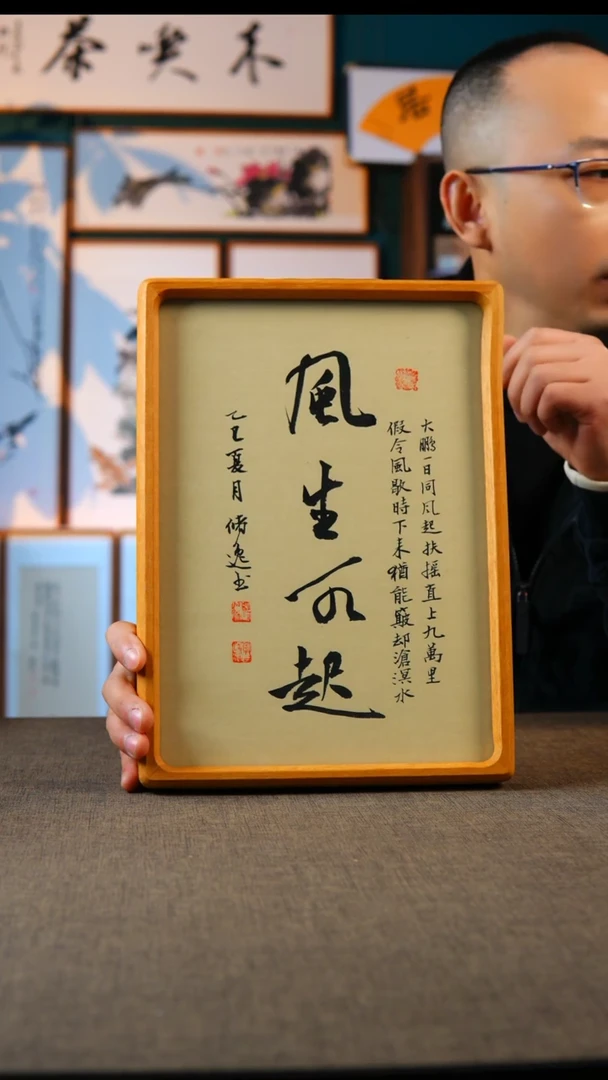 来喫茶
大鵬一日同风起扶摇直上九萬里
假令風歇時下来猶能簸却滄溟水
風生水起
乙巳夏月 脩逸书